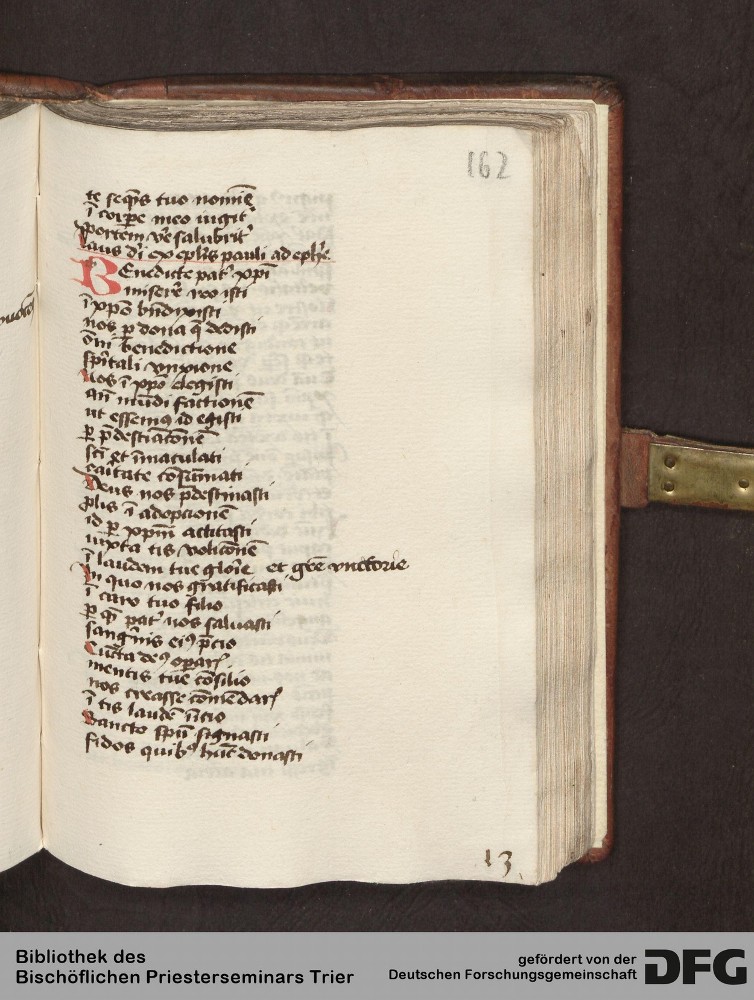 162
te seqͥs tuo nomīe
ī corꝑe meo iugit᷑
portem vͤre salubrit᷑
laus dī ex epl̄is pauli ad eph̄e
Benedicte pat᷑ xp̄i
miserͤe reo isti
ī xp̄o bn̄dixisti
nos ꝑ dona q̄ dedisti
ōni benedictione
sp̄itali vnxione
Nos ī xp̄o elegisti
an̄ mūdi factionē
ut essemꝰ id egisti
ꝑ p̄destiatōnē
sc̄i et īmaculati
caͥtate cōsūmati
Deus nos p̄destinasti
ꝓlis ī adopcionē
id ꝑ xp̄m actitasti
iuxta tis volicōnē
ī laudem tue glorīe et grē vnctorie
In quo nos gratificasti
ī caro tuo filio
ꝑ qē pat᷑ nos saluasti
sangͥnis eiꝰ p̄cio
Cūcta deꝰ oparͥ
mentis tue cōsilio
nos creasse cōmēdarͥ
ī tis laudē īicio
Sancto sp̄u signasti
fidos quibꝰ hūc donasti
13
Bibliothek des
Bischöflichen Priesterseminars Trier
gefördert von der
Deutschen Forschungsgemeinschaft
DFG